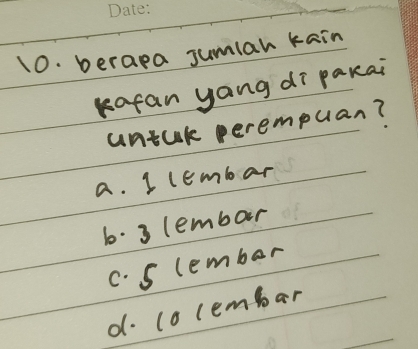 Date:
10. berapa jumlah kain
kafan yang di pakai
untuk perempuan?
a. 1 lembar
b. 3 lembar
c. 5 lembar
d. 10 lembar